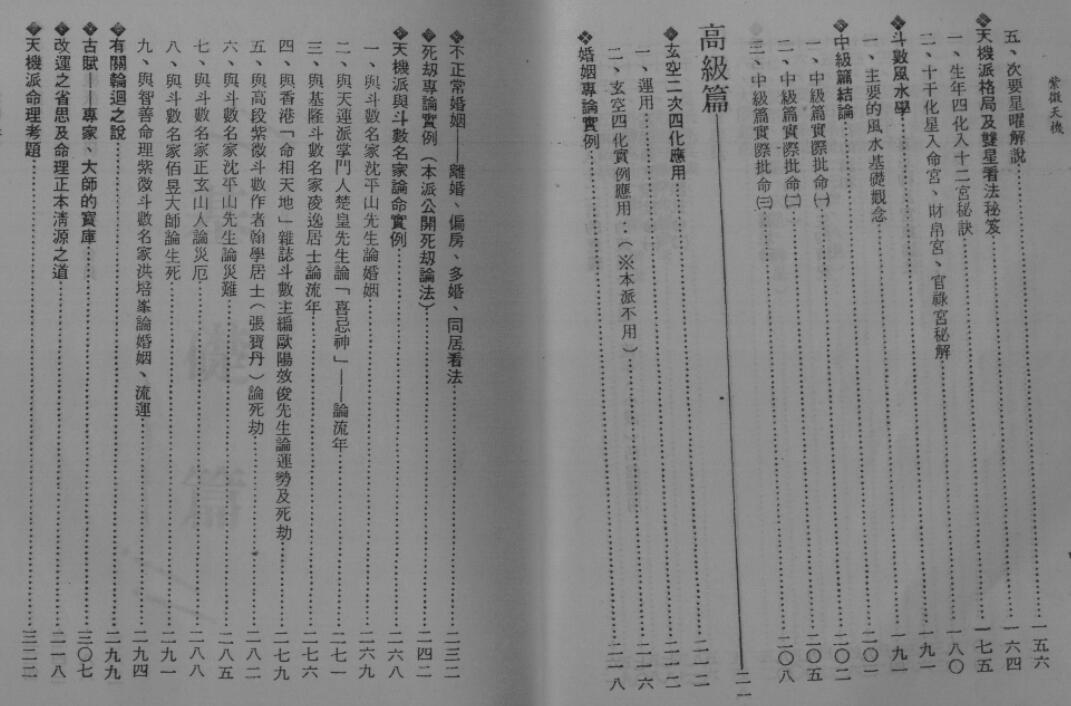 紫微天機
五、次要星曜解說……一五六
❖天機派格局及雙星看法秘笈……一六四
一、生年四化入十二宮秘訣……一七五
二、十干化星入命宮、財帛宮、官祿宮秘解……一八〇
❖斗數風水學……一九一
一、主要的風水基礎觀念……一九一
❖中級篇結論……二〇一
一、中級篇實際批命㈠……二〇二
二、中級篇實際批命㈡……二〇五
三、中級篇實際批命㈢……二〇八
高級篇——二一一
❖玄空二次四化應用……二一二
一、運用……二一二
二、玄空四化實例應用：(※本派不用)……二一六
❖婚姻專論實例……二一八
❖不正常婚姻——離婚、偏房、多婚、同居看法……二三二
❖死劫專論實例(本派公開死劫論法)……二四二
❖天機派與斗數名家論命實例……二六八
一、與斗數名家沈平山先生論婚姻……二六九
二、與天運派掌門人楚皇先生論「喜忌神」——論流年……二七一
三、與基隆斗數名家凌逸居士論流年……二七六
四、與香港「命相天地」雜誌斗數主編歐陽效俊先生論運勢及死劫……二七九
五、與高段紫微斗數作者翰學居士(張寶丹)論死劫……二八二
六、與斗數名家沈平山先生論災難……二八五
七、與斗數名家正玄山人論災厄……二八八
八、與斗數名家佰昱大師論生死……二九一
九、與智善命理紫微斗數名家洪培峯論婚姻、流運……二九四
❖有關輪迴之說……二九九
❖古賦——專家、大師的寶庫……三〇七
❖改運之省思及命理正本清源之道……二一八
❖天機派命理考題……三二二